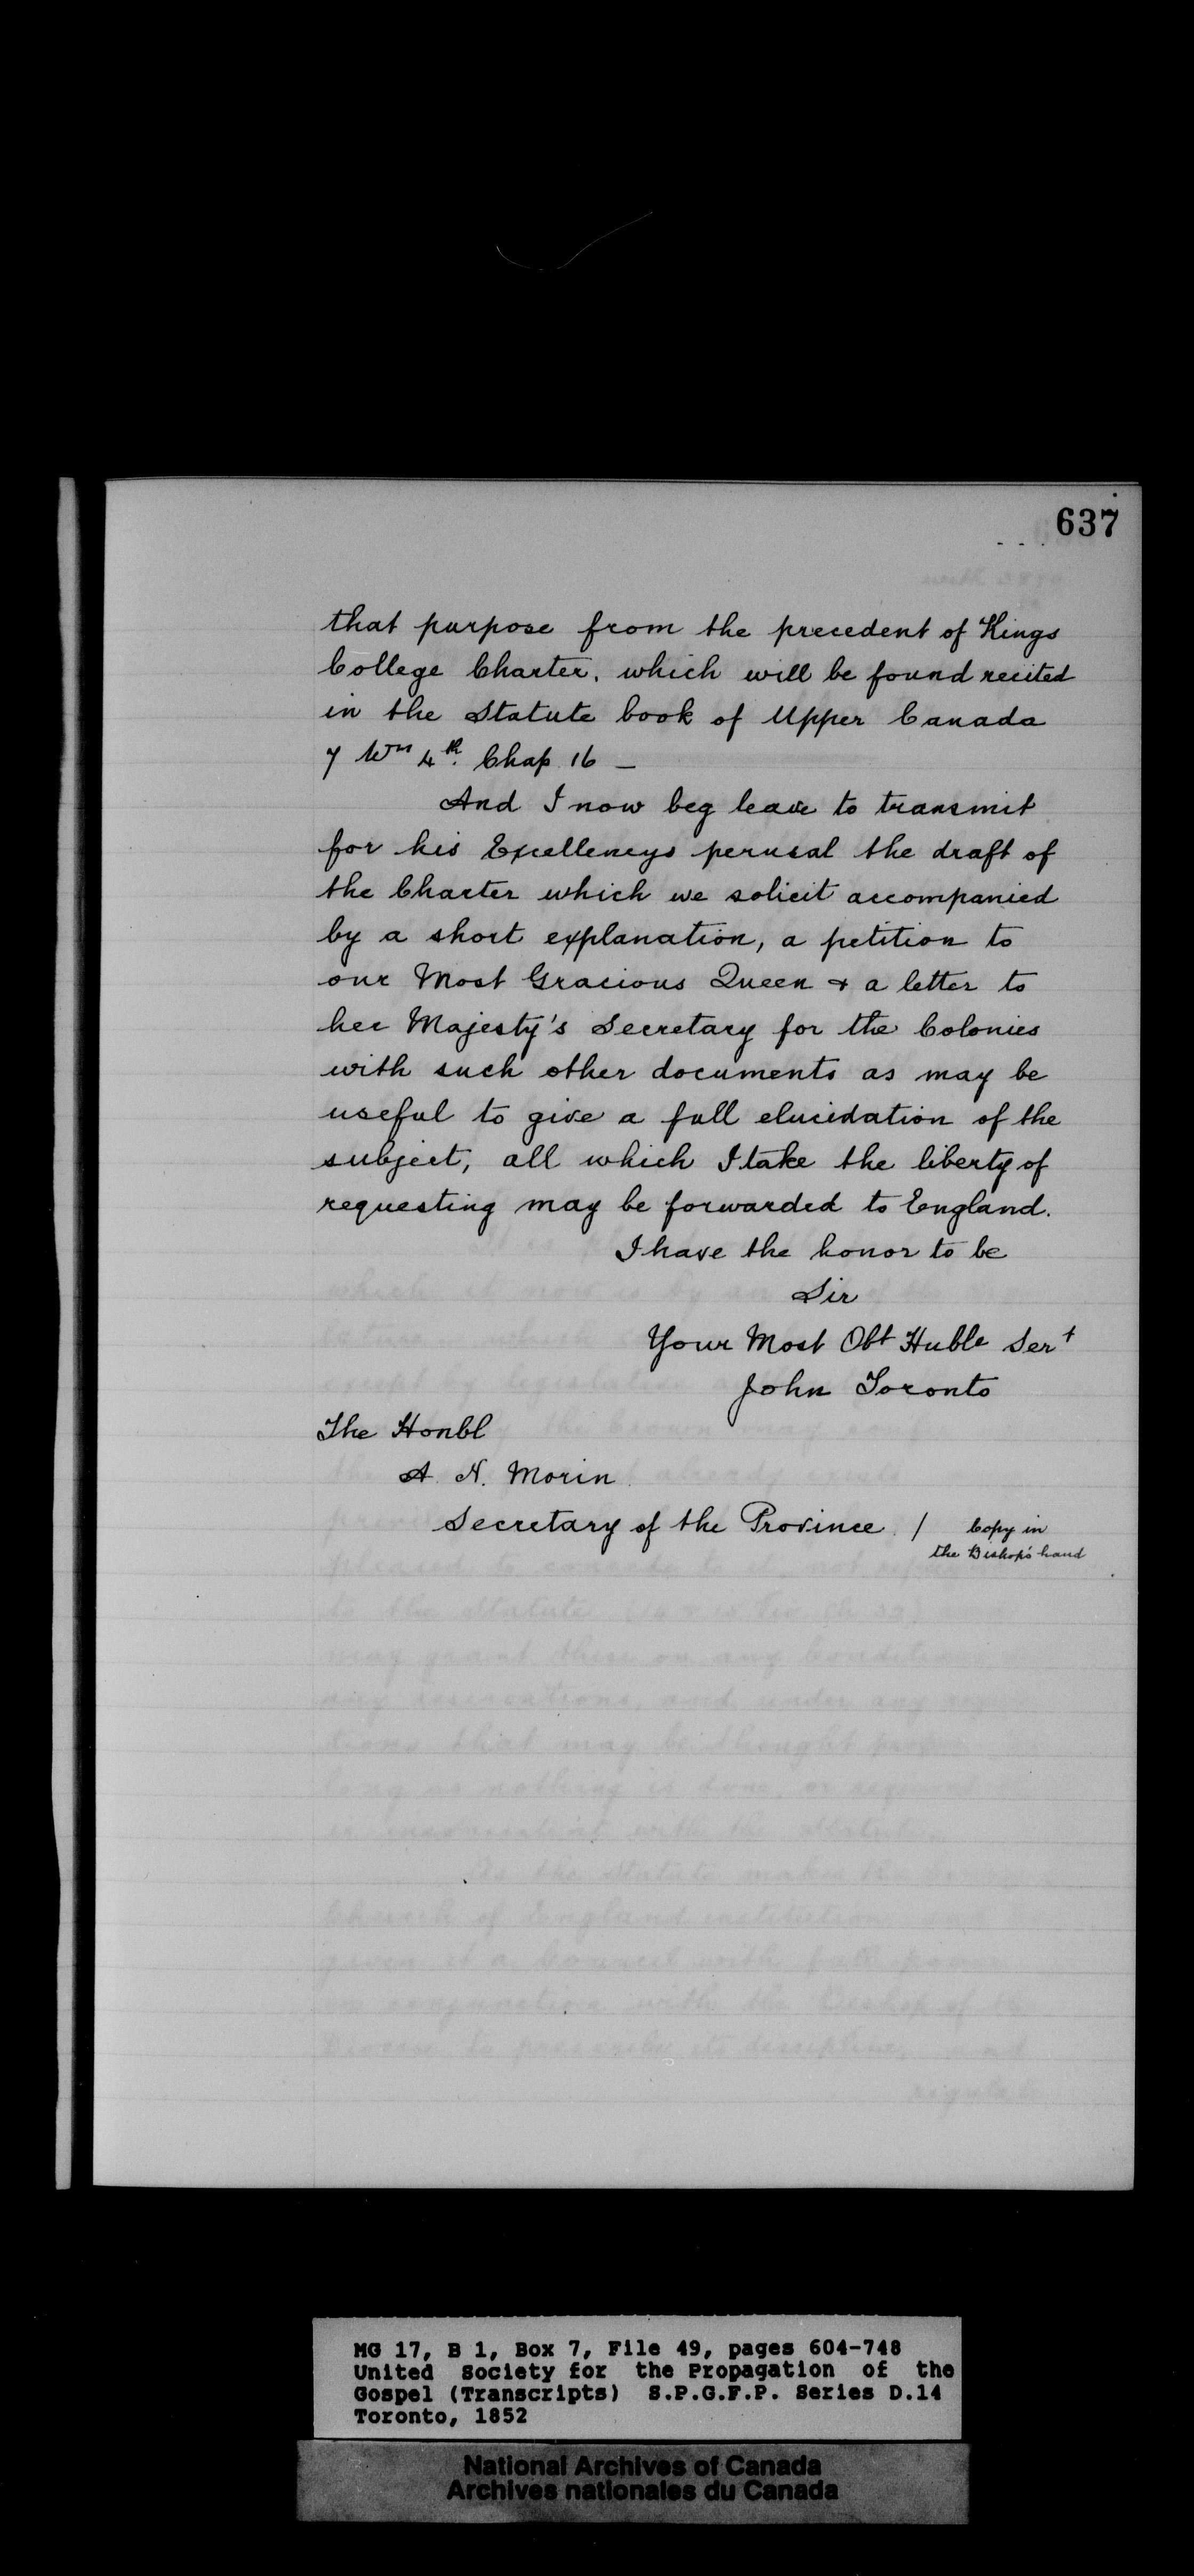 637
that purpose from the precedent of Kings
College Charter, which will be found recited
in the Statute book of Upper Canada
7 Wm 4th. Chap 16 –
And I now beg leave to transmit
for his Excellencys perusal the draft of
the Charter which we solicit accompanied
by a short explanation, a petition to
our Most Gracious Queen & a letter to
her Majesty's Secretary for the Colonies
with such other documents as may be
useful to give a full elucidation of the
subject, all which I take the liberty of
requesting may be forwarded to England.
I have the honor to be
Sir
Your Most Obt Huble Sert
John Toronto
The Honbl
A. N. Morin
Secretary of the Province. / Copy in
the Bishop's hand
MG 17, B 1, Box 7, File 49, pages 604-748
United Society for the Propagation of the
Gospel (Transcripts) S.P.G.F.P. Series D.14
Toronto, 1852
National Archives of Canada
Archives nationales du Canada